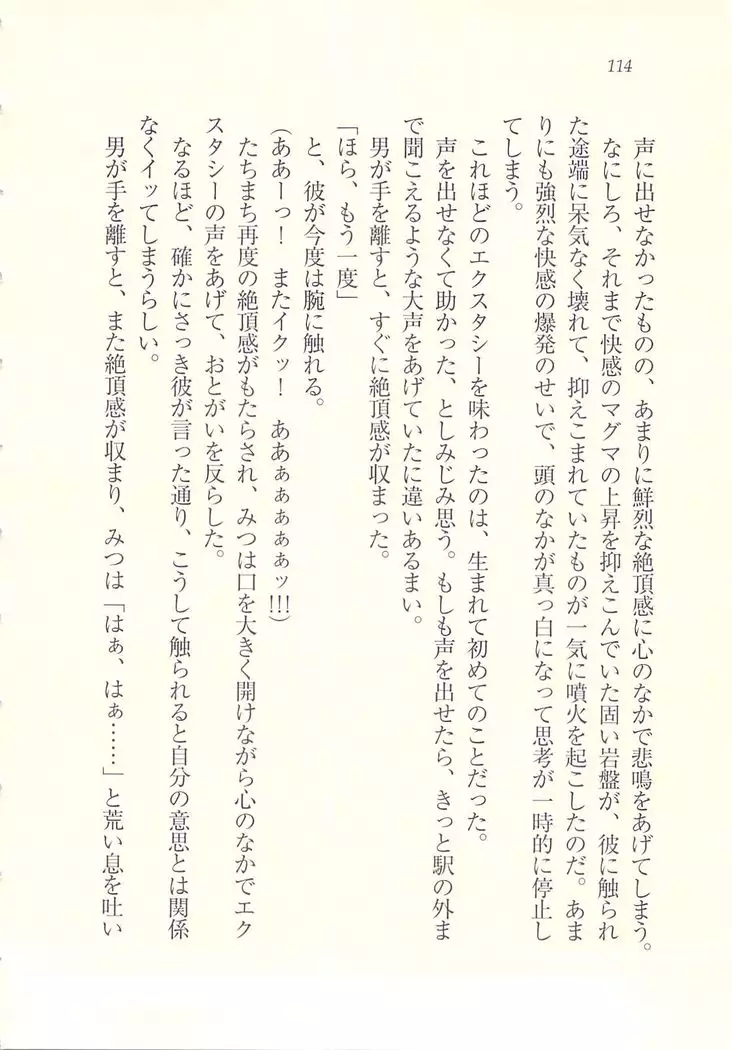 114
声に出せなかったものの、あまりに鮮烈な絶頂感に心のなかで悲鳴をあげてしまう。
なにしろ、それまで快感のマグマの上昇を抑えこんでいた固い岩盤が、彼に触られ
た途端に呆気なく壊れて、抑えこまれていたものが一気に噴火を起こしたのだ。あま
りにも強烈な快感の爆発のせいで、頭のなかが真っ白になって思考が一時的に停止し
てしまう。
これほどのエクスタシーを味わったのは、生まれて初めてのことだった。
声を出せなくて助かった、としみじみ思う。もしも声を出せたら、きっと駅の外ま
で聞こえるような大声をあげていたに違いあるまい。
男が手を離すと、すぐに絶頂感が収まった。
「ほら、もう一度」
と、彼が今度は腕に触れる。
(ああーっ! またイクッ! ああぁぁぁぁぁッ!!!)
たちまち再度の絶頂感がもたらされ、みつは口を大きく開けながら心のなかでエク
スタシーの声をあげて、おとがいを反らした。
なるほど、確かにさっき彼が言った通り、こうして触られると自分の意思とは関係
なくイッてしまうらしい。
男が手を離すと、また絶頂感が収まり、みつは「はぁ、はぁ……」と荒い息を吐い